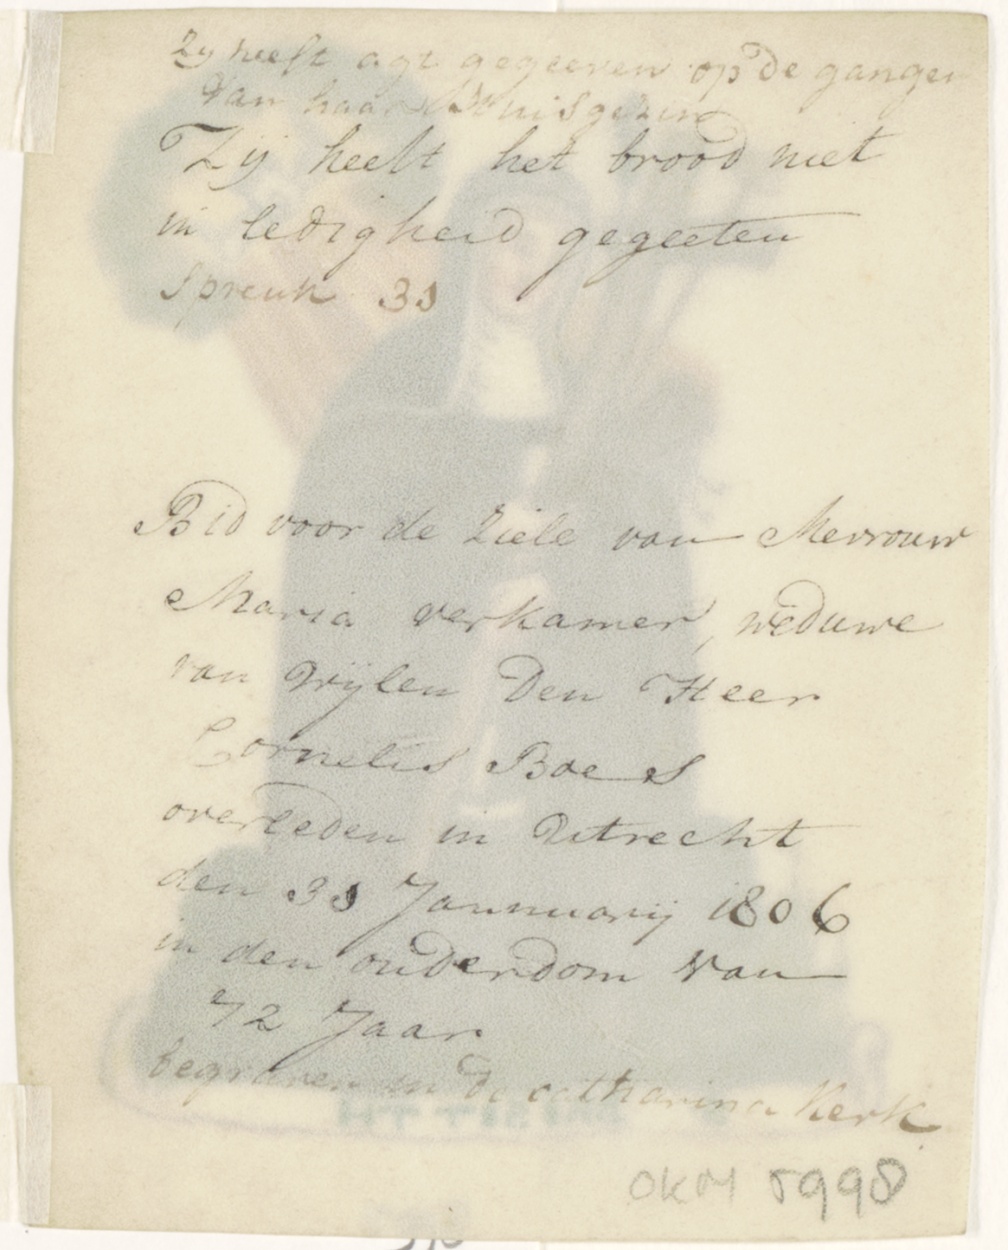 Zy heeft agt gegeeven op de gangen
van haar Huisgezin
Zij heeft het brood niet
in ledigheid gegeeten
Spreuk 31
Bid voor de Ziele van Mevrouw
Maria verkamer, weduwe
van Wijlen Den Heer
Cornelis Boe s
overleden in Utrecht
den 31 Jannuarij 1806
in den ouderdom van
72 Jaar
begraven in de catharina Kerk
OKM 5998